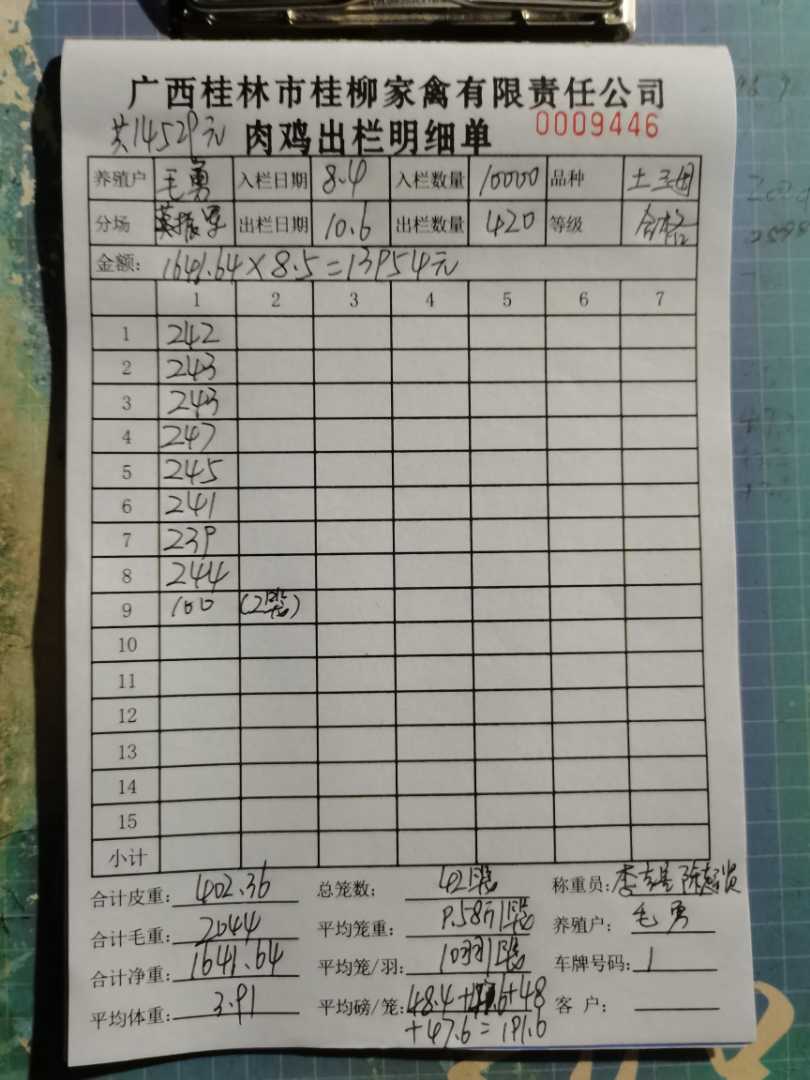 广西桂林市桂柳家禽有限责任公司
共14529元 肉鸡出栏明细单 0009446
养殖户 毛勇 入栏日期 8.4 入栏数量 10000 品种 土
分场 莫振军 出栏日期 10.6 出栏数量 420 等级 合格
金额: 1641.64×8.5=13954元
1 2 3 4 5 6 7
1 242
2 243
3 243
4 247
5 245
6 241
7 239
8 244
9 100 (2笼)
10
11
12
13
14
15
小计
合计皮重: 402.36 总笼数: 42笼 称重员:
合计毛重: 2044 平均笼重: 9.58斤/笼 养殖户: 毛勇
合计净重: 1641.64 平均笼/羽: 10羽/笼 车牌号码: 1
平均体重: 3.91 平均磅/笼: 48.4+47.6+48 客 户:
+47.6=191.6